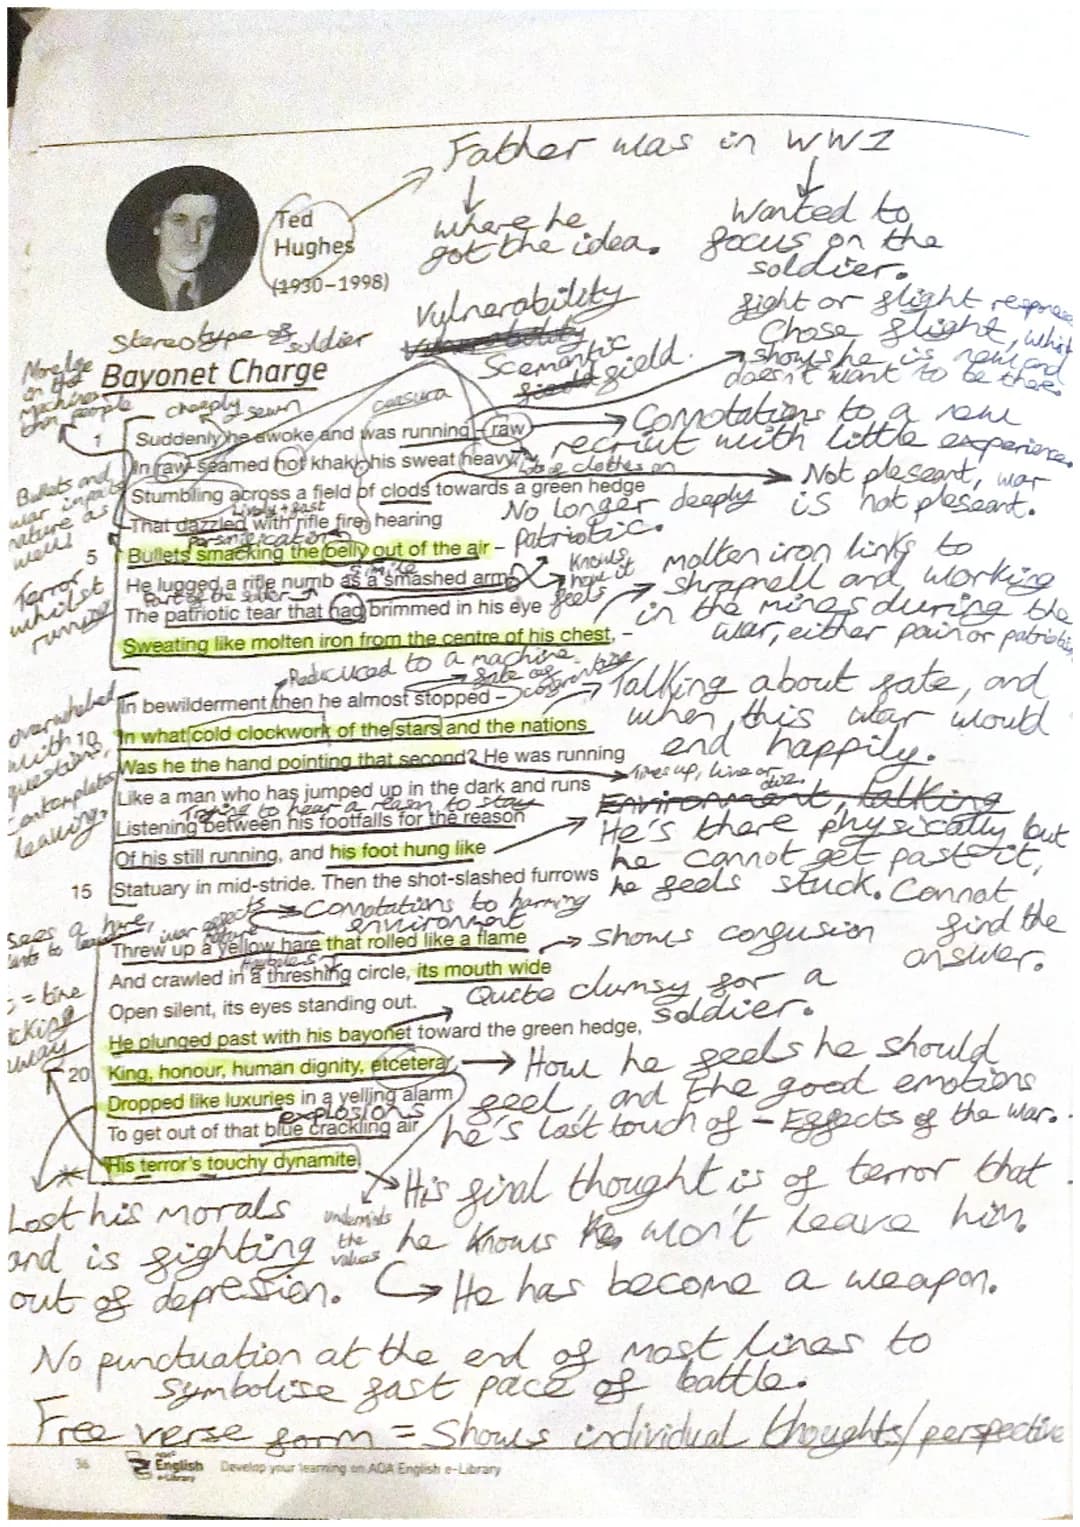 Father was in WW1
Ted
Hughes
(1930–1998)
where he
got the idea.
Wanted to
focus on the
soldier.
Stereotype of soldier
Vulnerability
Scemantic
field.
fight or flight
Chose flight,
shows he is new and
doesn't want to be there
Bayonet Charge
people
cheaply sewn
caesura
1 Suddenly he awoke and was running – raw
In raw-seamed hot khaki, his sweat heavy,
Stumbling across a field of clods towards a green hedge
That dazzled with rifle fire, hearing
5 Bullets smacking the belly out of the air –
He lugged a rifle numb as a smashed arm;
The patriotic tear that had brimmed in his eye
Sweating like molten iron from the centre of his chest, –
Connotations to a new
recruit with little experience.
lots of clothes on
Not pleseant, war
is not pleseant.
No longer deeply
patriotic.
personification
simile
Knows
how it
feels
molten iron links to
shrapnell and working
in the mines during the
war, either pain or
Bullets and
war impact
nature as
well
Terror
whilst
running
Reduced to a machine
In bewilderment then he almost stopped –
In what cold clockwork of the stars and the nations
10 Was he the hand pointing that second? He was running
Like a man who has jumped up in the dark and runs
Listening between his footfalls for the reason
Of his still running, and his foot hung like
15 Statuary in mid-stride. Then the shot-slashed furrows
Talking about fate, and
when this war would
end happily.
overwhelmed
with
questions,
contemplates
leaving.
Trying to hear a reason to stay
Environment, talking
He's there physically but
he cannot get past it,
he feels stuck. Cannot
find the
answer.
Connotations to harming
environment
Threw up a yellow hare that rolled like a flame
And crawled in a threshing circle, its mouth wide
Open silent, its eyes standing out.
He plunged past with his bayonet toward the green hedge,
20 King, honour, human dignity, etcetera
Dropped like luxuries in a yelling alarm
To get out of that blue crackling air
His terror's touchy dynamite.
Sees a hare,
Shows confusion
Quite clumsy for a
soldier.
How he feels he should
feel, and the good emotions
he's last touch of – Effects of the war.
explosions
Lost his morals
and is fighting
out of depression.
the
values
His final thought is of terror that
he knows won't leave him
He has become a weapon.
No punctuation at the end of most lines to
symbolise fast pace of battle.
Free verse form = Shows individual thoughts/perspective
36
AQA
English
e-Library
Develop your learning on AQA English e-Library